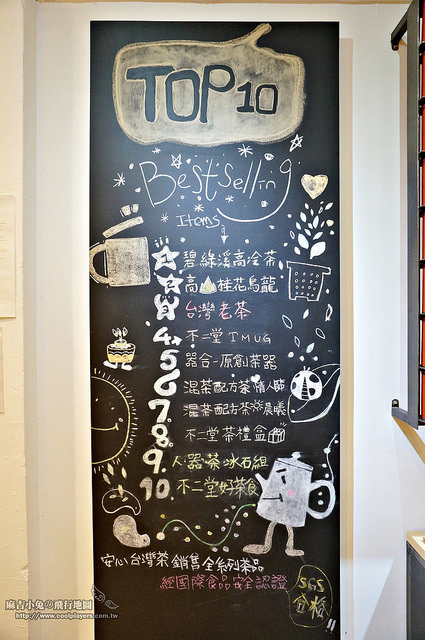 TOP 10
Bestselling
Items
碧綠溪高冷茶
高山桂花烏龍
台灣老茶
4. 不二堂 TMUG
5 器合一原創茶器
6 混茶配方茶 情人節
7. 混茶配方茶 晨曦
8. 不二堂茶禮盒
9. 人·器·茶·冰石組
10. 不二堂好茶食
安心台灣茶 銷售全系列茶品
經國際食品安全認證
SGS
合格
麻吉小兔の飛行地圖
http://www.coolplayers.com.tw